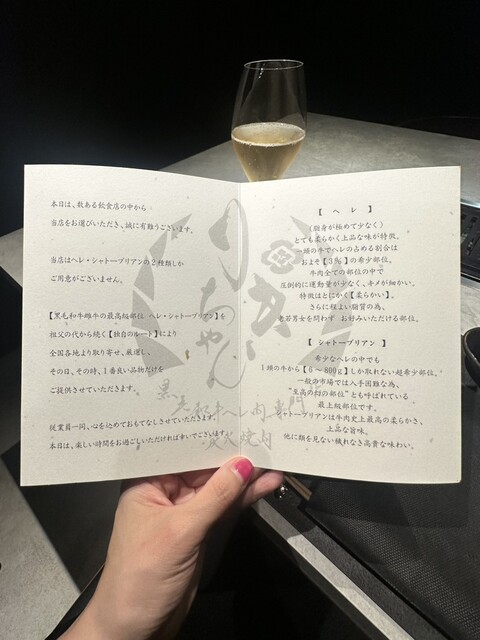 本日は、数ある飲食店の中から
当店をお選びいただき、誠に有難うございます。
当店はヘレ・シャトーブリアンの2種類しか
ご用意がございません。
【黒毛和牛雌牛の最高級部位 ヘレ・シャトーブリアン】を
祖父の代から続く【独自のルート】により
全国各地より取り寄せ、厳選し、
その日、その時、1番良い品物だけを
ご提供させていただきます。
従業員一同、心を込めておもてなしさせていただきます。
本日は、楽しい時間をお過ごしいただければ幸いでございます。
【 ヘレ 】
(脂身が極めて少なく)
とても柔らかく上品な味が特徴。
一頭の牛でヘレの占める割合は
およそ【3%】の希少部位。
牛肉全ての部位の中で
圧倒的に運動量が少なく、キメが細かい。
特徴はとにかく【柔らかい】。
さらに程よい脂質の為、
老若男女を問わず お好みいただける部位。
【 シャトーブリアン 】
希少なヘレの中でも
1頭の牛から【6〜800g】しか取れない超希少部位。
一般の市場では入手困難な為、
"至高の幻の部位"とも呼ばれている
最上級部位です。
シャトーブリアンは牛肉史上最高の柔らかさ、
上品な旨味。
他に類を見ない穢れなき高貴な味わい。
りかちゃん
黒毛和牛ヘレ肉専門
炭火焼肉